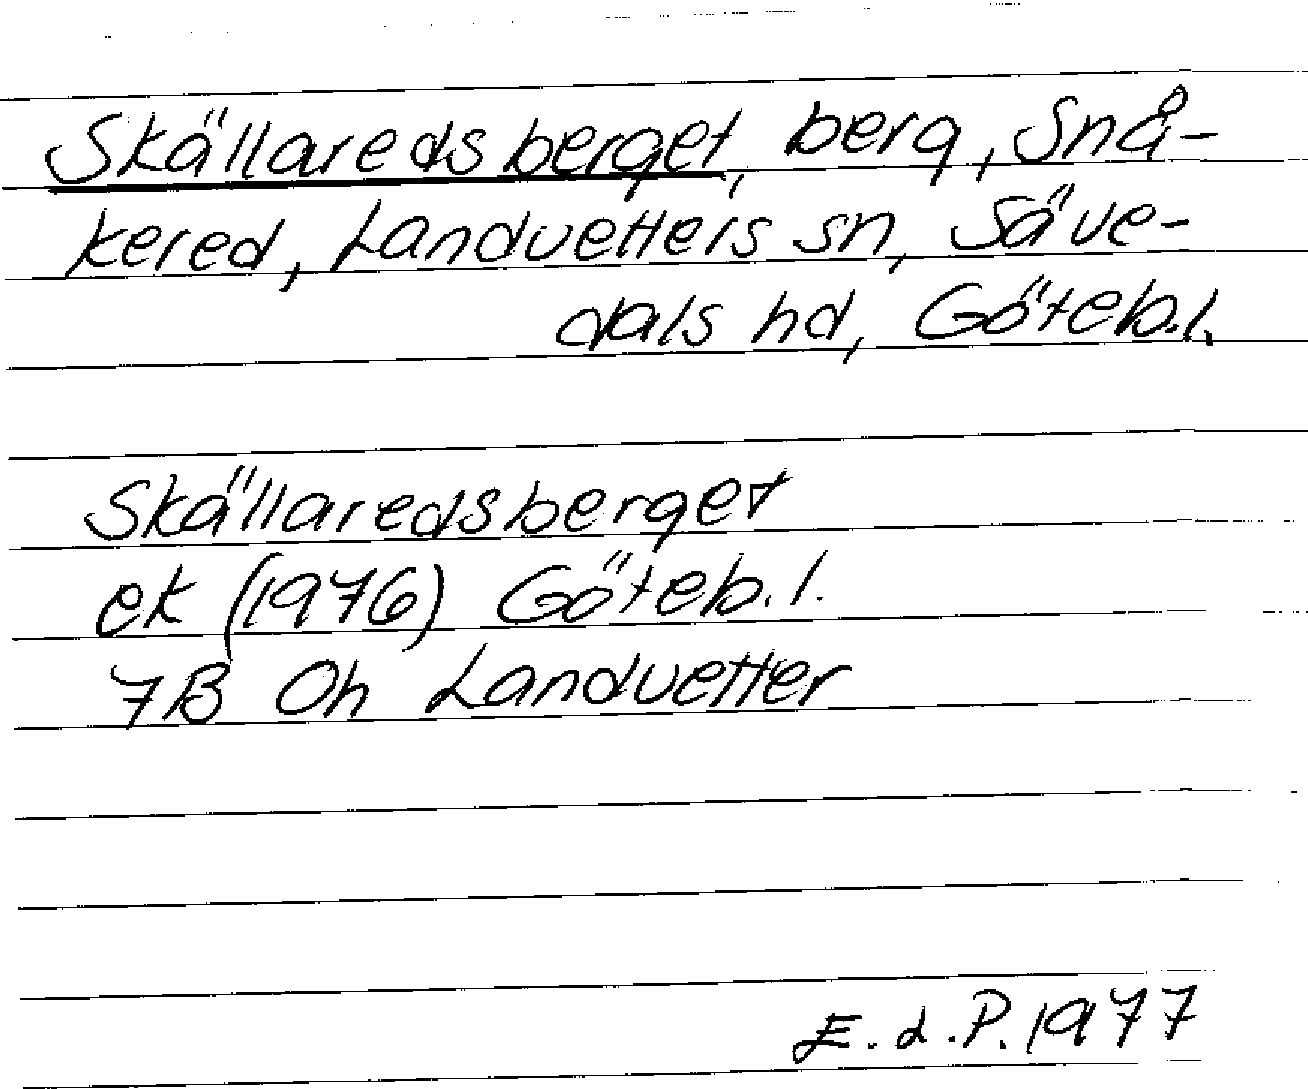 Skällaredsberget, berg, Snå-
kered, Landvetters sn, Säve-
dals hd, Göteb.l.
Skällaredsberget
ek (1976) Göteb.l.
7B Oh Landvetter
E.L.P. 1977